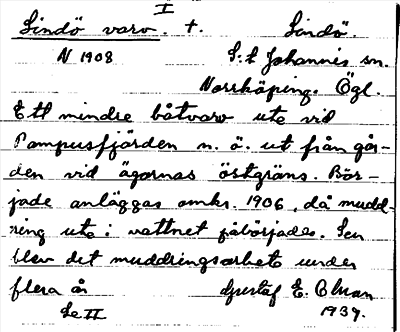 I
Lindö varv. †. Lindö.
N 1908 S:t Johannis sn.
Norrköping. Ögl.
Ett mindre båtvarv ute vid
Pampusfjärden n. ö. ut från går-
den vid ägornas östgräns. Bör-
jade anläggas omkr. 1906, då mudd-
ring ute i vattnet påbörjades. Sen
blev det muddringsarbete under
flera år Gustaf E.
Se II 1939.